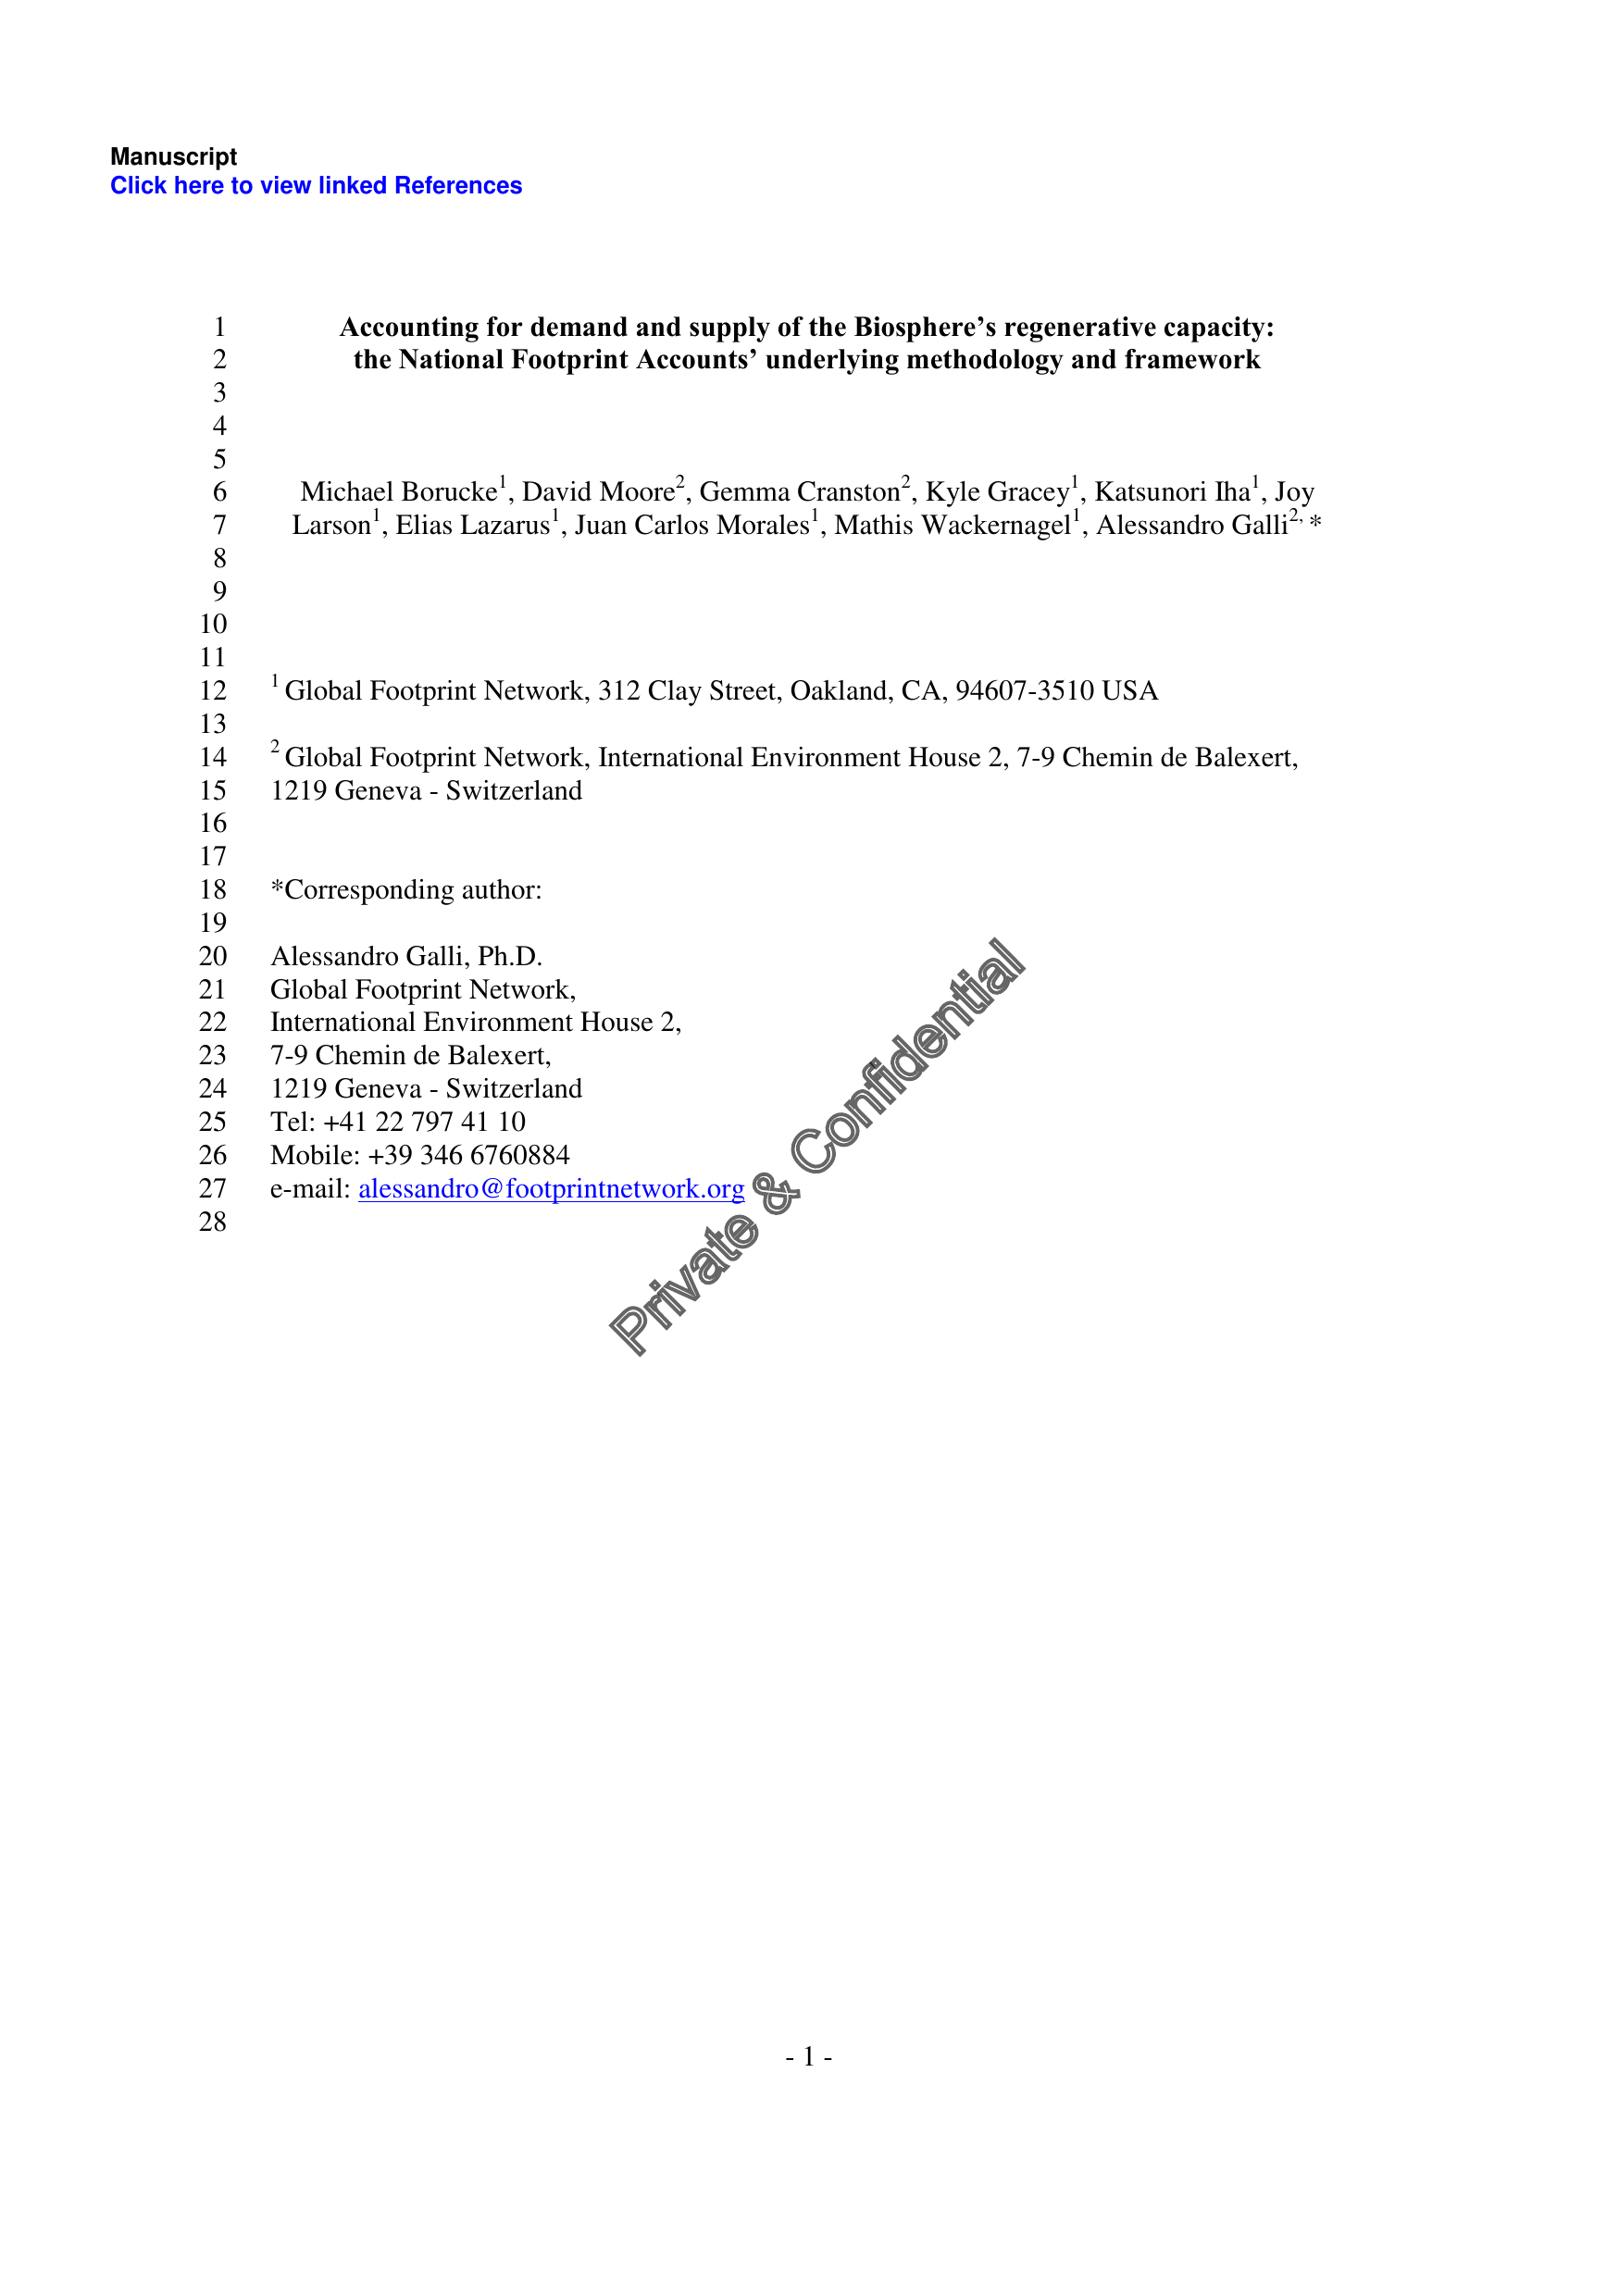 Manuscript
Click here to view linked References
1 Accounting for demand and supply of the Biosphere’s regenerative capacity:
2 the National Footprint Accounts’ underlying methodology and framework
3
4
5
6 Michael Borucke1, David Moore2, Gemma Cranston2, Kyle Gracey1, Katsunori Iha1, Joy
7 Larson1, Elias Lazarus1, Juan Carlos Morales1, Mathis Wackernagel1, Alessandro Galli2, *
8
9
10
11
12 1 Global Footprint Network, 312 Clay Street, Oakland, CA, 94607-3510 USA
13
14 2 Global Footprint Network, International Environment House 2, 7-9 Chemin de Balexert,
15 1219 Geneva - Switzerland
16
17
18 *Corresponding author:
19
20 Alessandro Galli, Ph.D.
21 Global Footprint Network,
22 International Environment House 2,
23 7-9 Chemin de Balexert,
24 1219 Geneva - Switzerland
25 Tel: +41 22 797 41 10
26 Mobile: +39 346 6760884
27 e-mail: alessandro@footprintnetwork.org
28
Private & Confidential
- 1 -